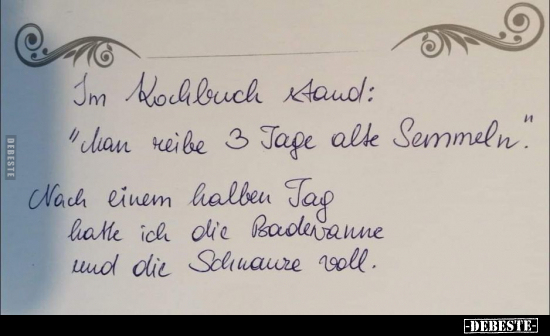 Im Kochbuch stand:
"Man reibe 3 Tage alte Semmeln."
Nach einem halben Tag
hatte ich die Badewanne
und die Schnauze voll.
DEBESTE
-DEBESTE-